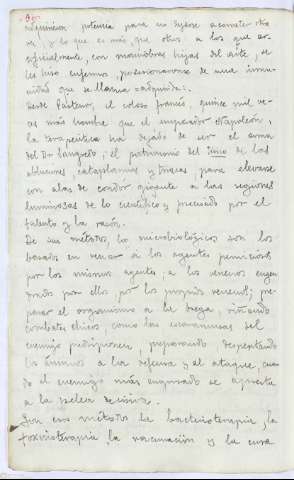 adquirieron potencia para no dejarse acometer otra
vez, y lo que es más que otros, a los que ar-
tificialmente, con maniobras hijas del arte, se
les hizo enfermos, posesionáronse de una inmu-
nidad que se llama "adquirida".
Desde Pasteur, el coloso francés, quince mil ve-
ces más hombre que el emperador Napoleón,
la terapéutica ha dejado de ser el arma
del Dr Sangredo, el patrimonio del de las
abluciones, cataplasmas y triacas, para elevarse
con alas de condor gigante a las regiones
luminosas de lo científico y preciado por el
talento y la razón.
De sus métodos, los microbiológicos son los
basados en vencer a los agentes perniciosos
por los mismos agentes, a los venenos engen-
drados por ellos por los propios venenos; pre-
parar el organismo a la brega, simulando
combates chicos, como las escaramuzas del
enemigo predisponen, preparando despertando
los ánimos a la defensa y al ataque, cuan-
do el enemigo más engreído se apresta
a la pelea decisiva.
Son esos métodos la bacterioterapia, la
toxinoterapia, la vacunación y la cura